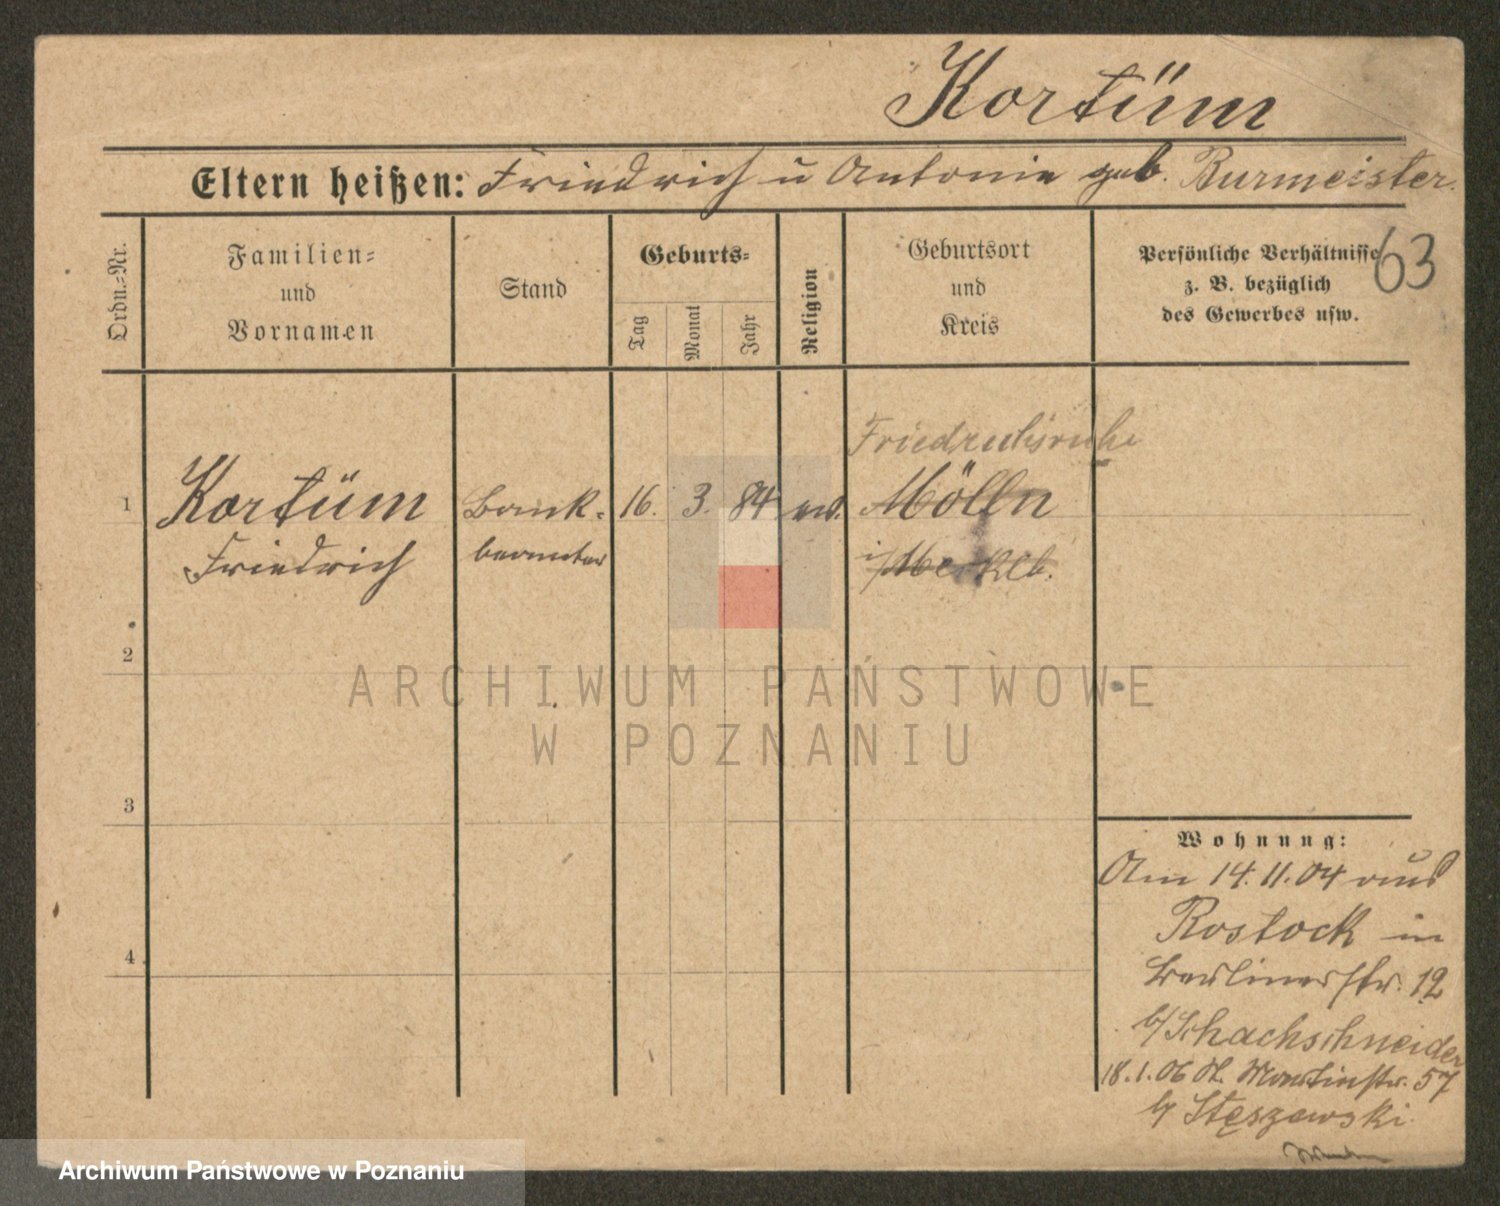 Kortüm
Eltern heißen: Friedrich u Antonie geb. Burmeister.
63
Ordn.-Nr.
Familien-
und
Vornamen
Stand
Geburts-
Tag
Monat
Jahr
Religion
Geburtsort
und
Kreis
Persönliche Verhältnisse
z. B. bezüglich
des Gewerbes usw.
Friedrichsruhe
1 Kortüm Bank- 16. 3. 84 ev. Mölln
Friedrich beamter i/Mecklb.
2
3
4
ARCHIWUM PAŃSTWOWE
W POZNANIU
Wohnung:
Am 14.11.04 aus
Rostock in
Berlinerstr. 12
b/Schachschneider
18.1.06 St. Martinstr. 57
b/ Stęszewski
Archiwum Państwowe w Poznaniu